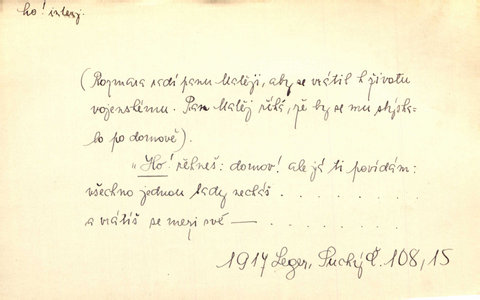 ho! interj.
(Rozmara radí panu Matěji, aby se vrátil k životu
vojenskému. Pan Matěj říká, že by se mu stýska-
lo po domově).
„Ho! řekneš: domov! ale já ti povídám:
všechno jednou tady necháš . . . . . . . . . .
a vrátíš se mezi své — . . . . . . . .
1917 Leger, Suchý Č. 108, 15